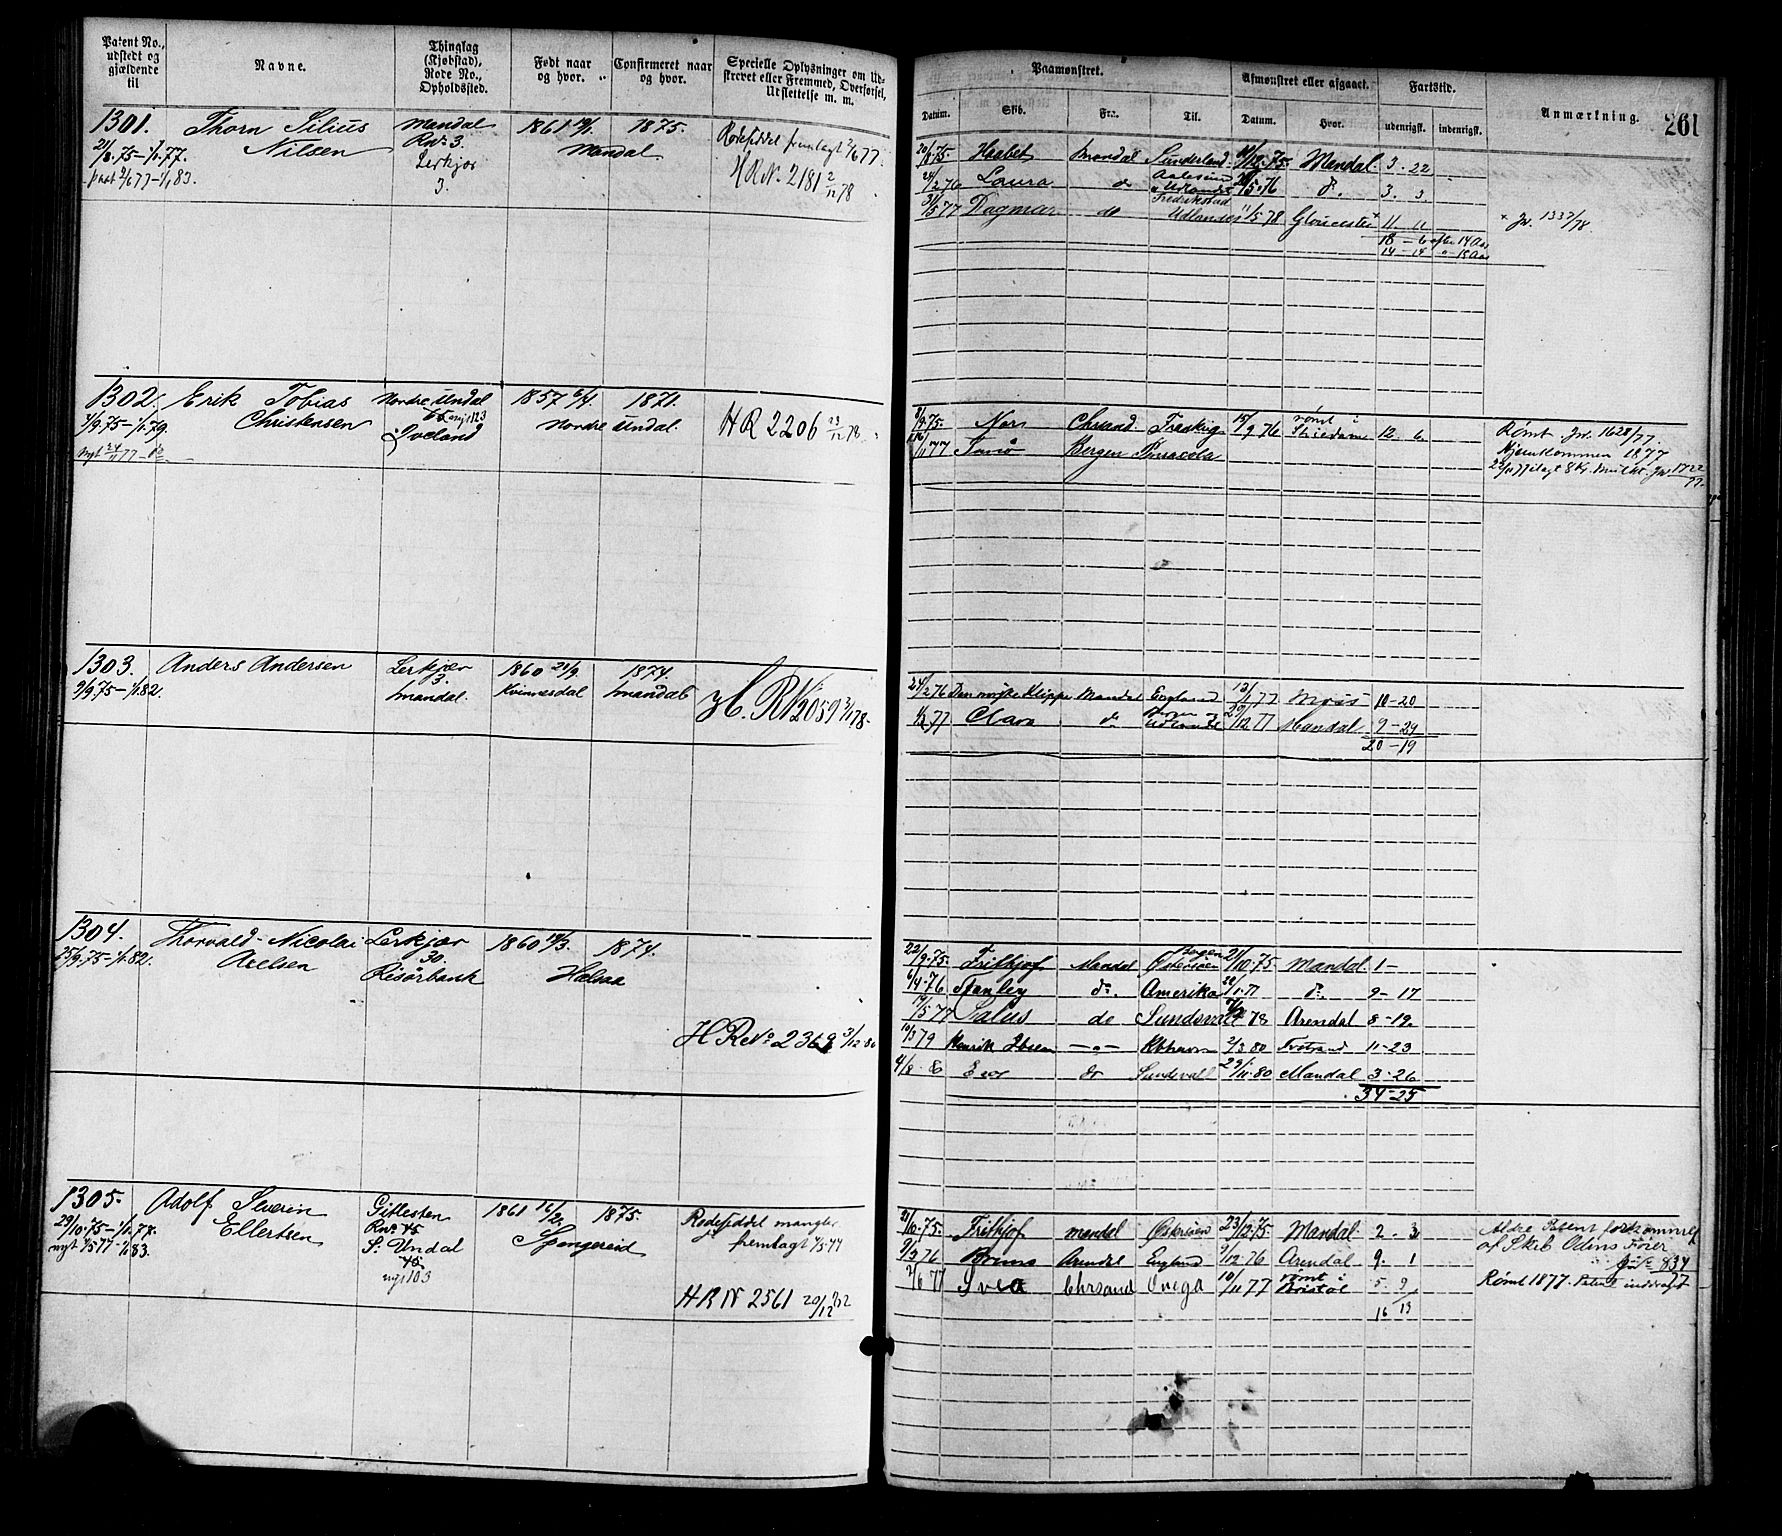 Patent No., udstedt og gjældende til
Navne.
Thinglag (Kjøbstad), Rode No., Opholdssted.
Født naar og hvor.
Confirmeret naar og hvor.
Specielle Oplysninger om Udskrevet eller Fremmed, Overførsel, Udslettelse m. m.
Paamønstret.
Afmønstret eller afgaaet.
Fartstid.
Anmærkning.
261
Datum.
Skib.
Fra.
Til.
Datum.
Hvor.
udenrigsk.
indenrigsk.
1301.
21/8.75-1/1.77.
Thorn Silius
Nilsen
Mandal
Rno. 3.
Lerkjær
3.
1861 19/1.
1875.
Mandal
Rodeseddel fremlagt 2/6 77.
HRN. 2181 2/12 78
Haabet Mandal Sunderland 12.75. Mandal. 3. 22
24/2 76 Laura do Aalesund Udlandet 76 do. 3. 3
31/5 77 Dagmar do Fredrikstad Udlandet 11/5 78 Gloucester + 11. 11
+ Jr. 1337/78.
18 - 6 efter 14 Aar
14 - 14 " 15 Aar
1302.
4/9.75-1/1.79.
Erik Tobias
Christensen
Nordre Undal
Qveland
1857 6/4.
1871.
Nordre Undal.
HR 2206 23/12 78.
8/9.75. Nor Chrsand. Fredrig 15/9 76 rømt i 12. 6
Rømt Jr. 1628/77.
Hjemkommen 1877
22/11 77 ilagt 8 Kr. Mulkt. Jr. 1722/77.
77 Bergen Pensacola
1303.
9/9.75-1/1.82.
Anders Andersen
Lerkjær
3.
Mandal.
1860 21/9.
Kvinnesdal
1874.
Mandal
H. RN. 2059 3/1 78-
24/2 76 Danmajke Klippe Mandal England 12/1 77 Moss 10-20
1/2 77 Clara do Udlandet 12 77 Mandal 9-29
20-19
1304.
15/9.75-1/1.82.
Thorvald Nicolai
Axelsen
Lerkjær
30.
Risørbank
1860 19/3.
1874.
Halsaa
HRNo 2369 3/12 80
22/9.75. Frithjof Mandal Østersøen 21/10.75 Mandal. 1-
6/4.76 Stanley do. Amerika 28/1.77 do. 9-17
19/5 77 Salus do Sundsvall 78 Arendal 8-19.
10/3 79 Henrik Ibsen -"- Kbhavn 2/3 80 Tvedstrand 11-23
4/8. 80 do Sundsvall 29/11.80 Mandal 3-26
34-25
1305.
29/10.75-1/1.77.
nyt 1/5 77-1/1 83.
Adolf Severin
Ellertsen
Gitlesten
Rno. 45
S. Undal
nyt 103
1861 16/2.
1875.
Spangereid
Rodeseddel mangler
fremlagt 1/5 77
HRN 2561 20/12 82
21/10.75. Frithjof Mandal Østersøen 23/12.75 Mandal 2. 3
Ældre Patent forkommet
af Skib Odins Forlis
Jr. No 834/77
9/3 76 Bruno Arendal England 9/12.76 Arendal 9. 1
2/6 77 Svea Chrsand Onega 10/11 77 rømt i Bristol 5. 9
Rømt 1877. Patent inddraget
16 13